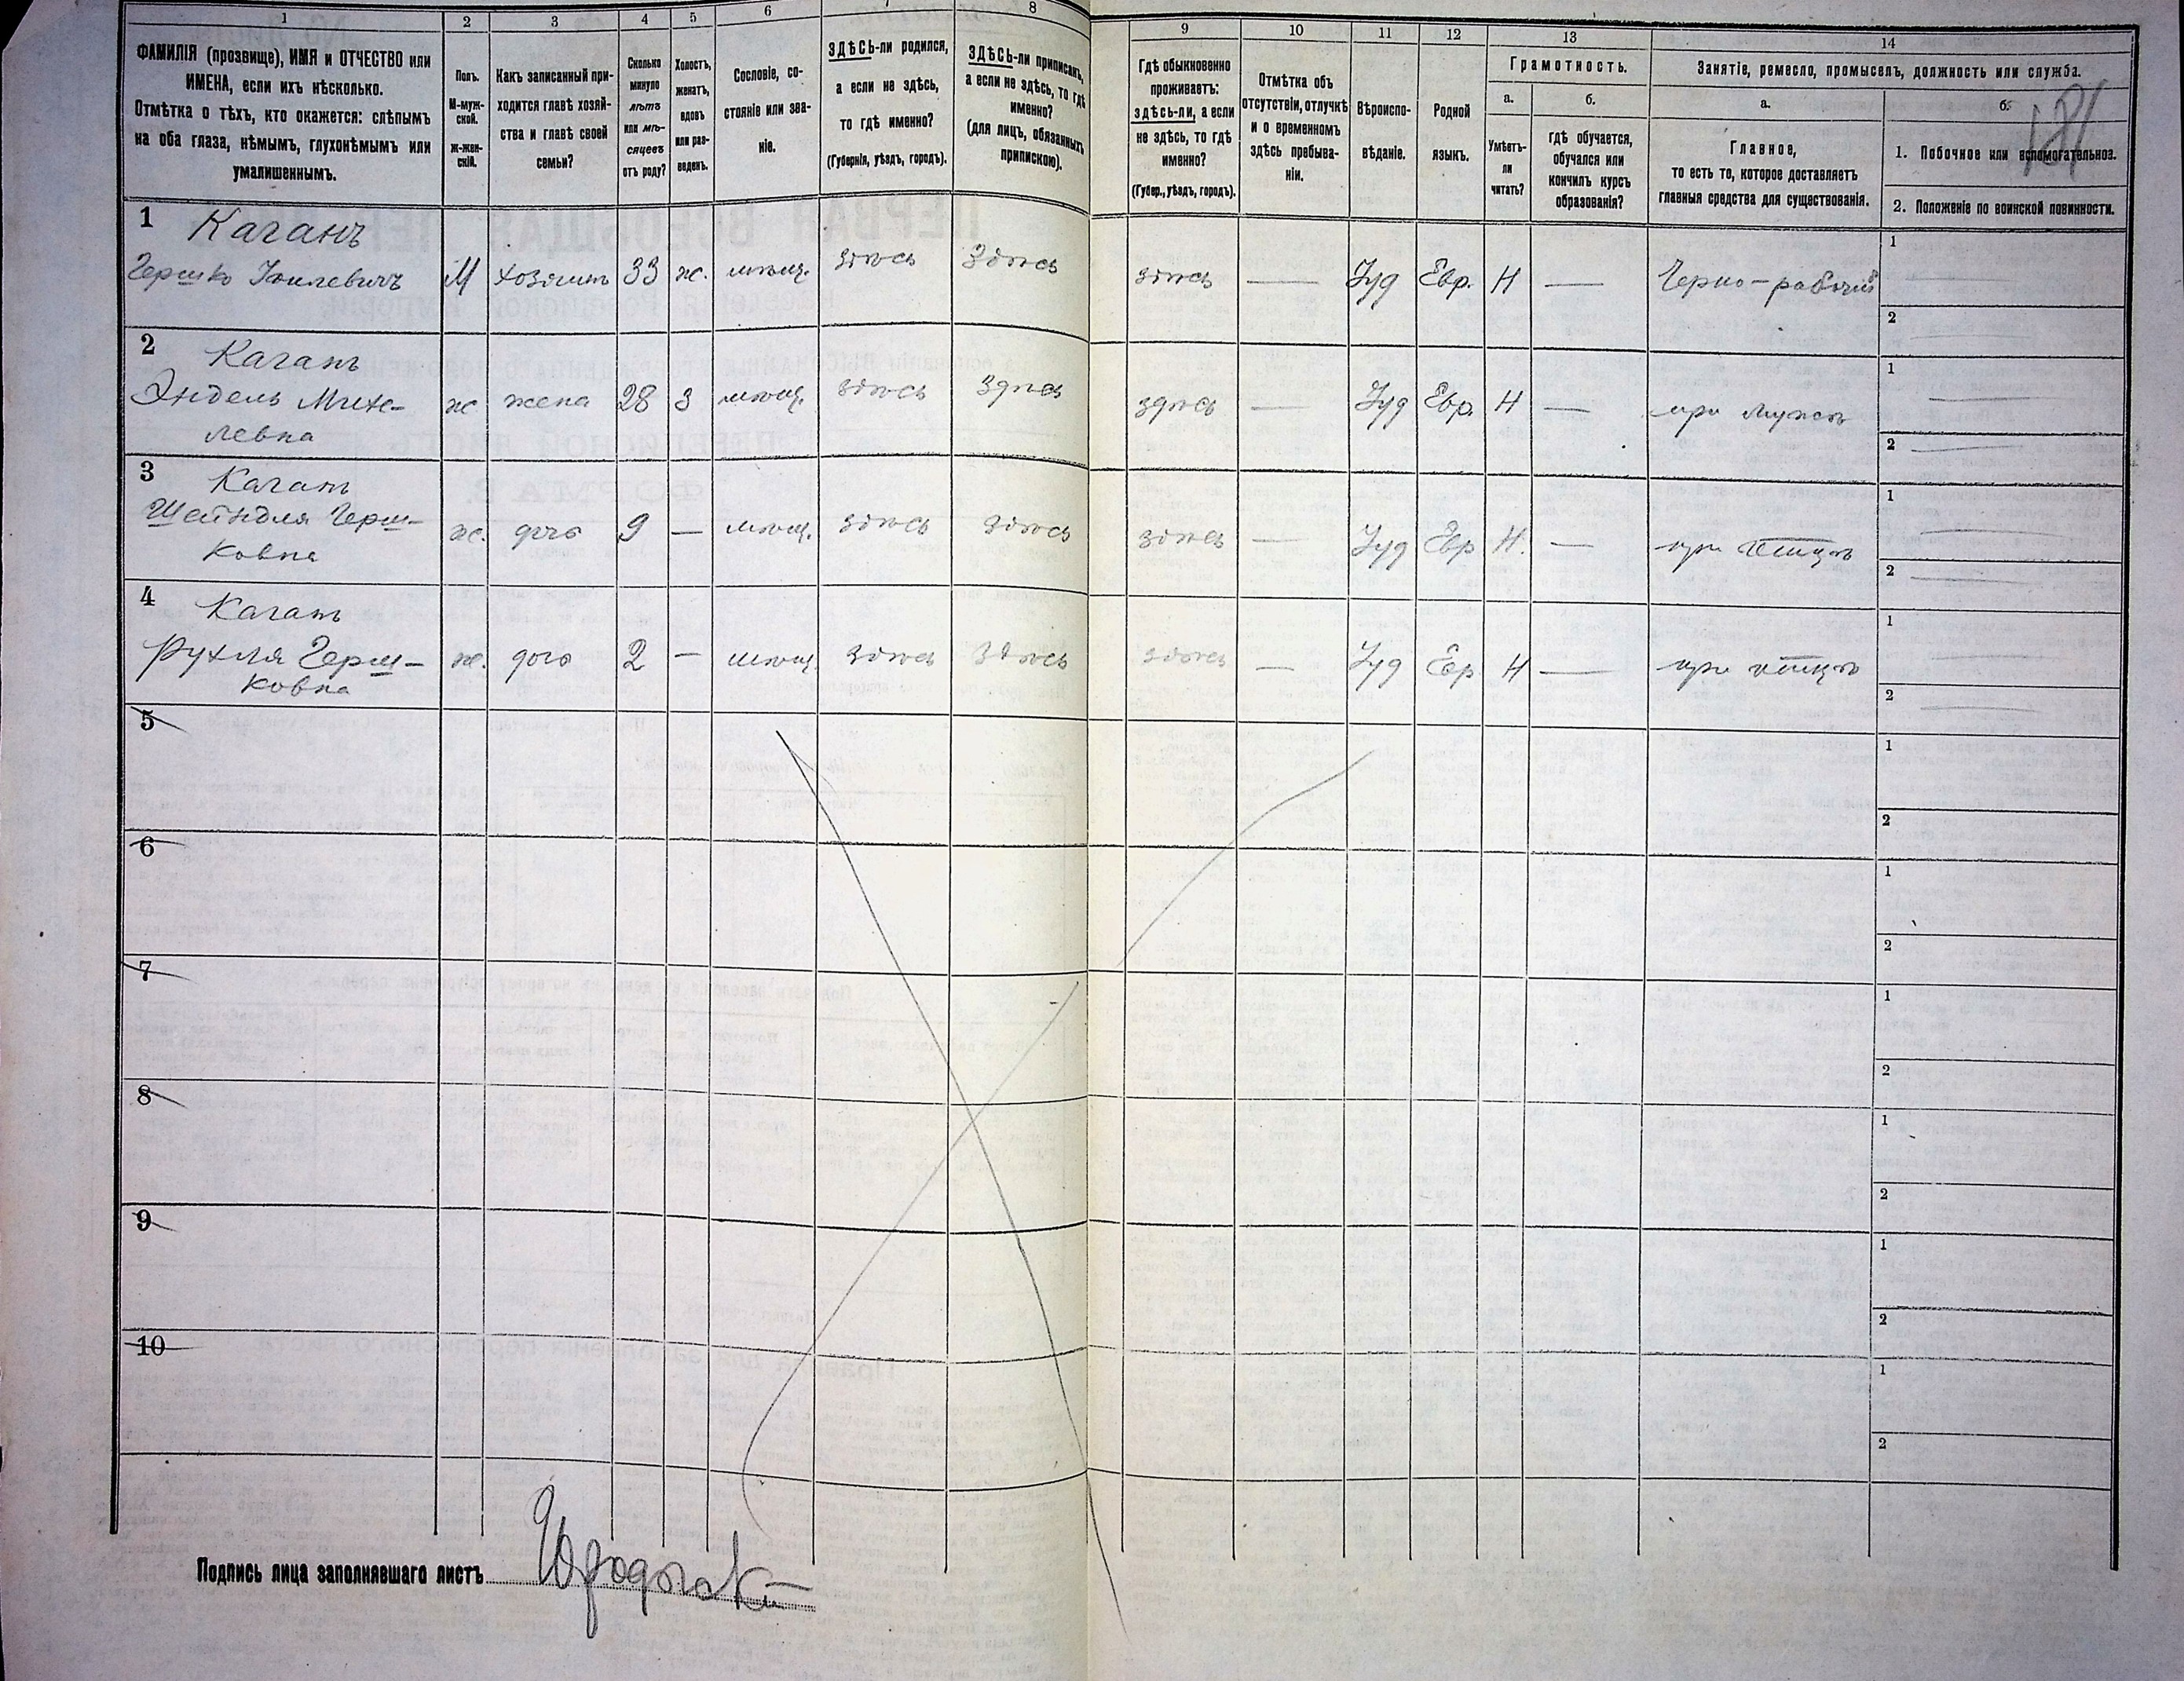 1 2 3 4 5 6 7 8 9 10 11 12 13 14
ФАМИЛІЯ (прозвище), ИМЯ и ОТЧЕСТВО или
ИМЕНА, если ихъ нѣсколько.
Отмѣтка о тѣхъ, кто окажется: слѣпымъ
на оба глаза, нѣмымъ, глухонѣмымъ или
умалишеннымъ.
Полъ.
М-муж-
ской.
ж-жен-
скій.
Какъ записанный при-
ходится главѣ хозяй-
ства и главѣ своей
семьи?
Сколько
минуло
лѣтъ
или мѣ-
сяцевъ
отъ роду?
Холостъ,
женатъ,
вдовъ
или раз-
веденъ.
Сословіе, со-
стояніе или зва-
ніе.
ЗДѢСЬ-ли родился,
а если не здѣсь,
то гдѣ именно?
(Губернія, уѣздъ, городъ).
ЗДѢСЬ-ли приписанъ,
а если не здѣсь, то гдѣ
именно?
(для лицъ, обязанныхъ
припискою).
Гдѣ обыкновенно
проживаетъ:
здѣсь-ли, а если
не здѣсь, то гдѣ
именно?
(Губер., уѣздъ, городъ).
Отмѣтка объ
отсутствіи, отлучкѣ
и о временномъ
здѣсь пребыва-
ніи.
Вѣроиспо-
вѣданіе.
Родной
языкъ.
Грамотность.
а.
Умѣетъ-
ли
читать?
б.
гдѣ обучается,
обучался или
кончилъ курсъ
образованія?
Занятіе, ремесло, промыселъ, должность или служба.
а.
Главное,
то есть то, которое доставляетъ
главныя средства для существованія.
б.
181
1. Побочное или вспомогательное.
2. Положеніе по воинской повинности.
1 Каганъ
Гершко
М хозяинъ 33 ж. мѣщ. здѣсь здѣсь здѣсь — Іуд Евр. Н — Черно-рабочій
1
2
2 Каганъ
Эндель
левна
ж жена 28 З мѣщ. здѣсь здѣсь здѣсь — Іуд Евр. Н — при мужѣ
1
2
3 Каганъ
Шейндля Герш-
ковна
ж. дочь 9 — мѣщ. здѣсь здѣсь здѣсь — Іуд Евр Н. — при отцѣ
1
2
4 Каганъ
Рухля Герш-
ковна
ж. дочь 2 — мѣщ. здѣсь здѣсь здѣсь — Іуд Евр Н — при отцѣ
1
2
5
1
2
6
1
2
7
1
2
8
1
2
9
1
2
10
1
2
Подпись лица заполнявшаго листъ